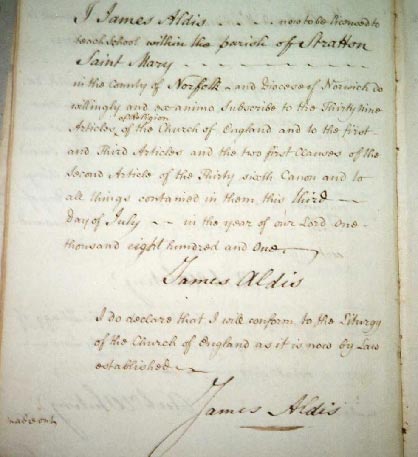 I James Aldis now to be licensed to
teach School within the parish off Stratton
Saint Mary
in the County of Norfolk and Diocese of Norwich do
willingly and ex animo Subscribe to the Thirty nine
Articles of Religion of the Church of England and to the first
and Third Articles and the two first Clauses of the
Second Article of the Thirty sixth Canon and to
all things contained in them this third
Day of July in the year of our Lord One
thousand eight hundred and One.
James Aldis
I do declare that I will conform to the Liturgy
of the Church of England as it is now by Law
established
James Aldis